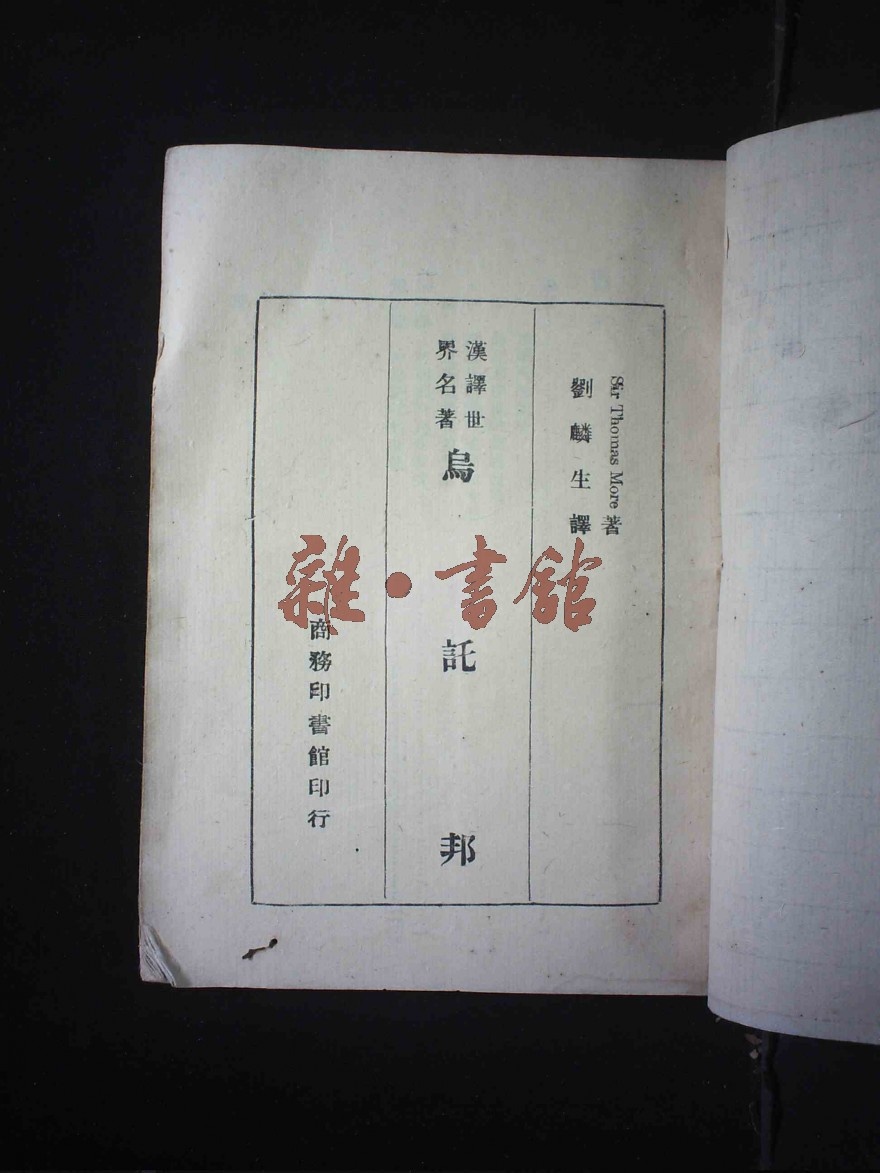 Sir Thomas More 著
劉麟生譯
漢譯世
界名著
烏託邦
商務印書館印行
雜·書館